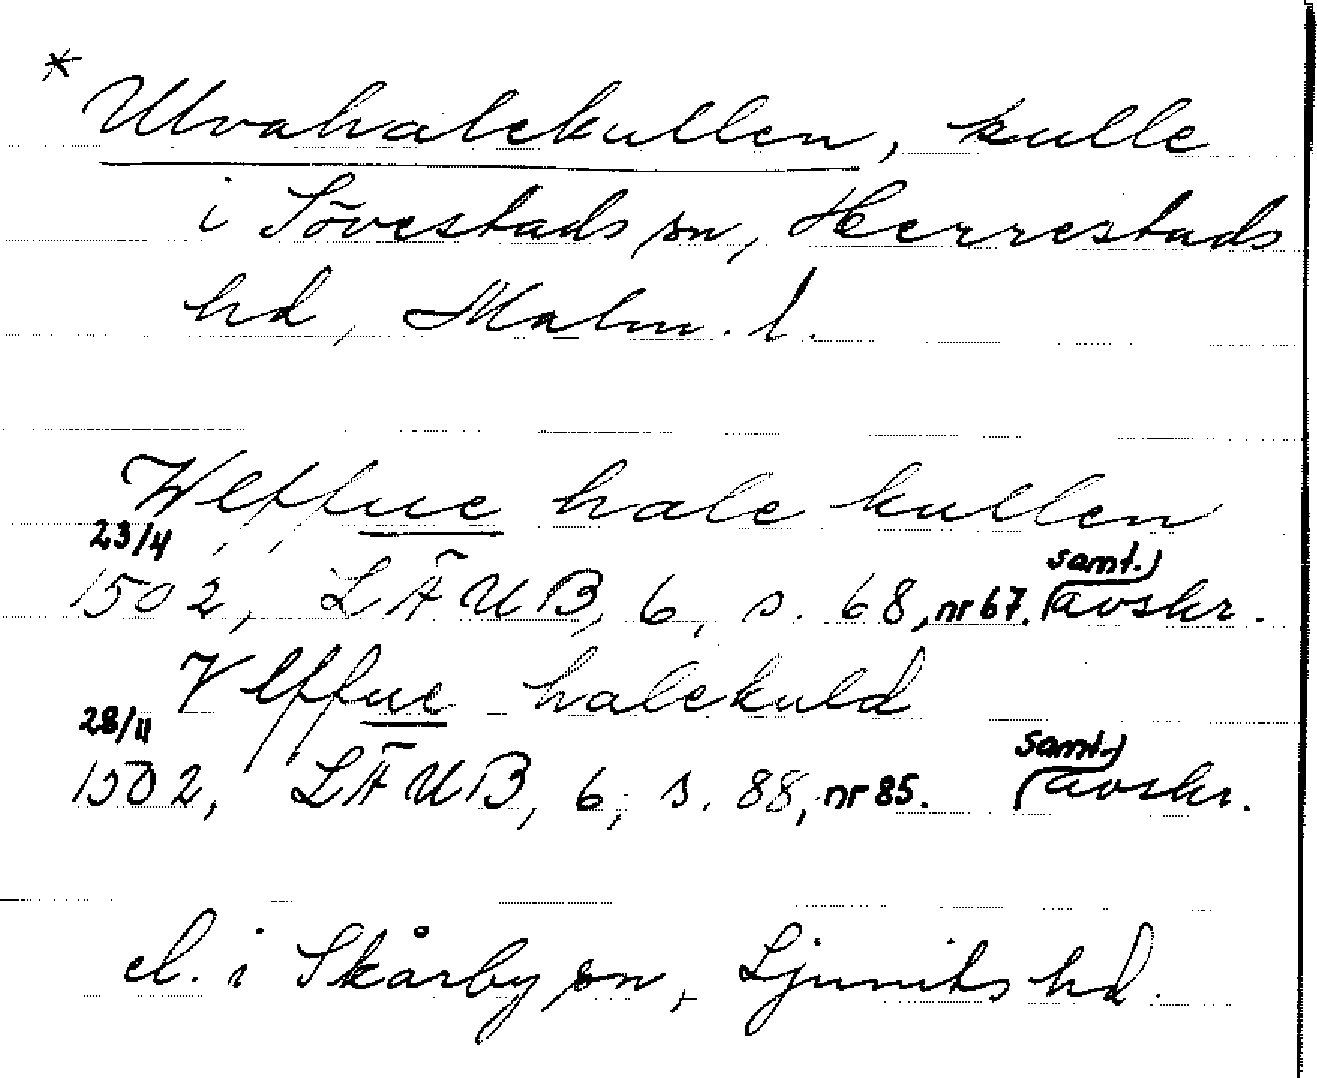 * Ulvahalekullen, kulle
i Sövestads sn, Herrestads
hd, Malm. l.
Wlffue hale kullen
23/4
1502, LÄUB, 6, s. 68, nr 67. (samt.) avskr.
Vlffue halekuld
28/4
1502, LÄUB, 6, s. 88, nr 85. (samt.) avskr.
el. i Skårby sn, Ljunits hd.